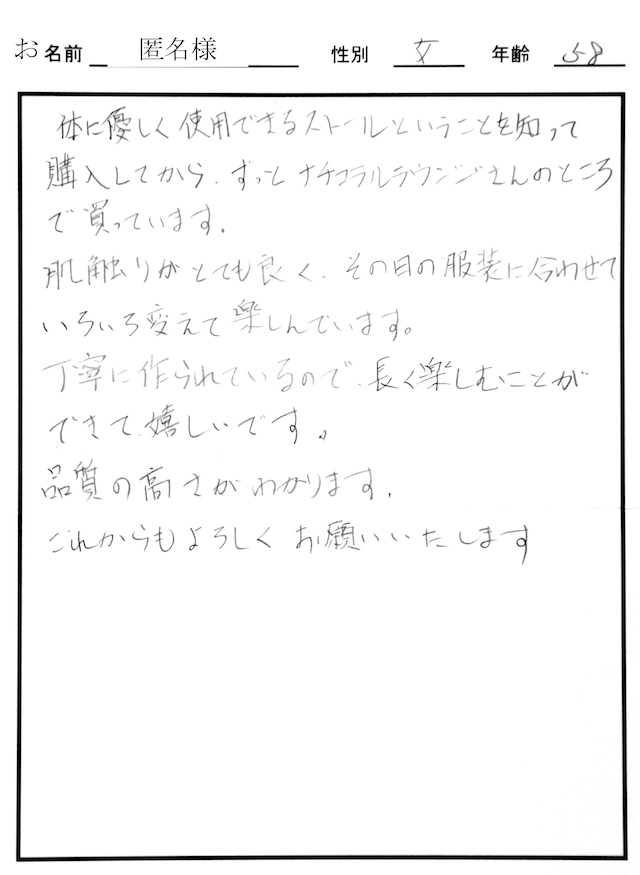 お名前 匿名様 性別 女 年齢 58
体に優しく使用できるストールということを知って
購入してから、ずっとナチュラルラウンジさんのところ
で買っています。
肌触りがとても良く、その日の服装に合わせて
いろいろ変えて楽しんでいます。
丁寧に作られているので、長く楽しむことが
できて、嬉しいです。
品質の高さがわかります。
これからもよろしくお願いいたします